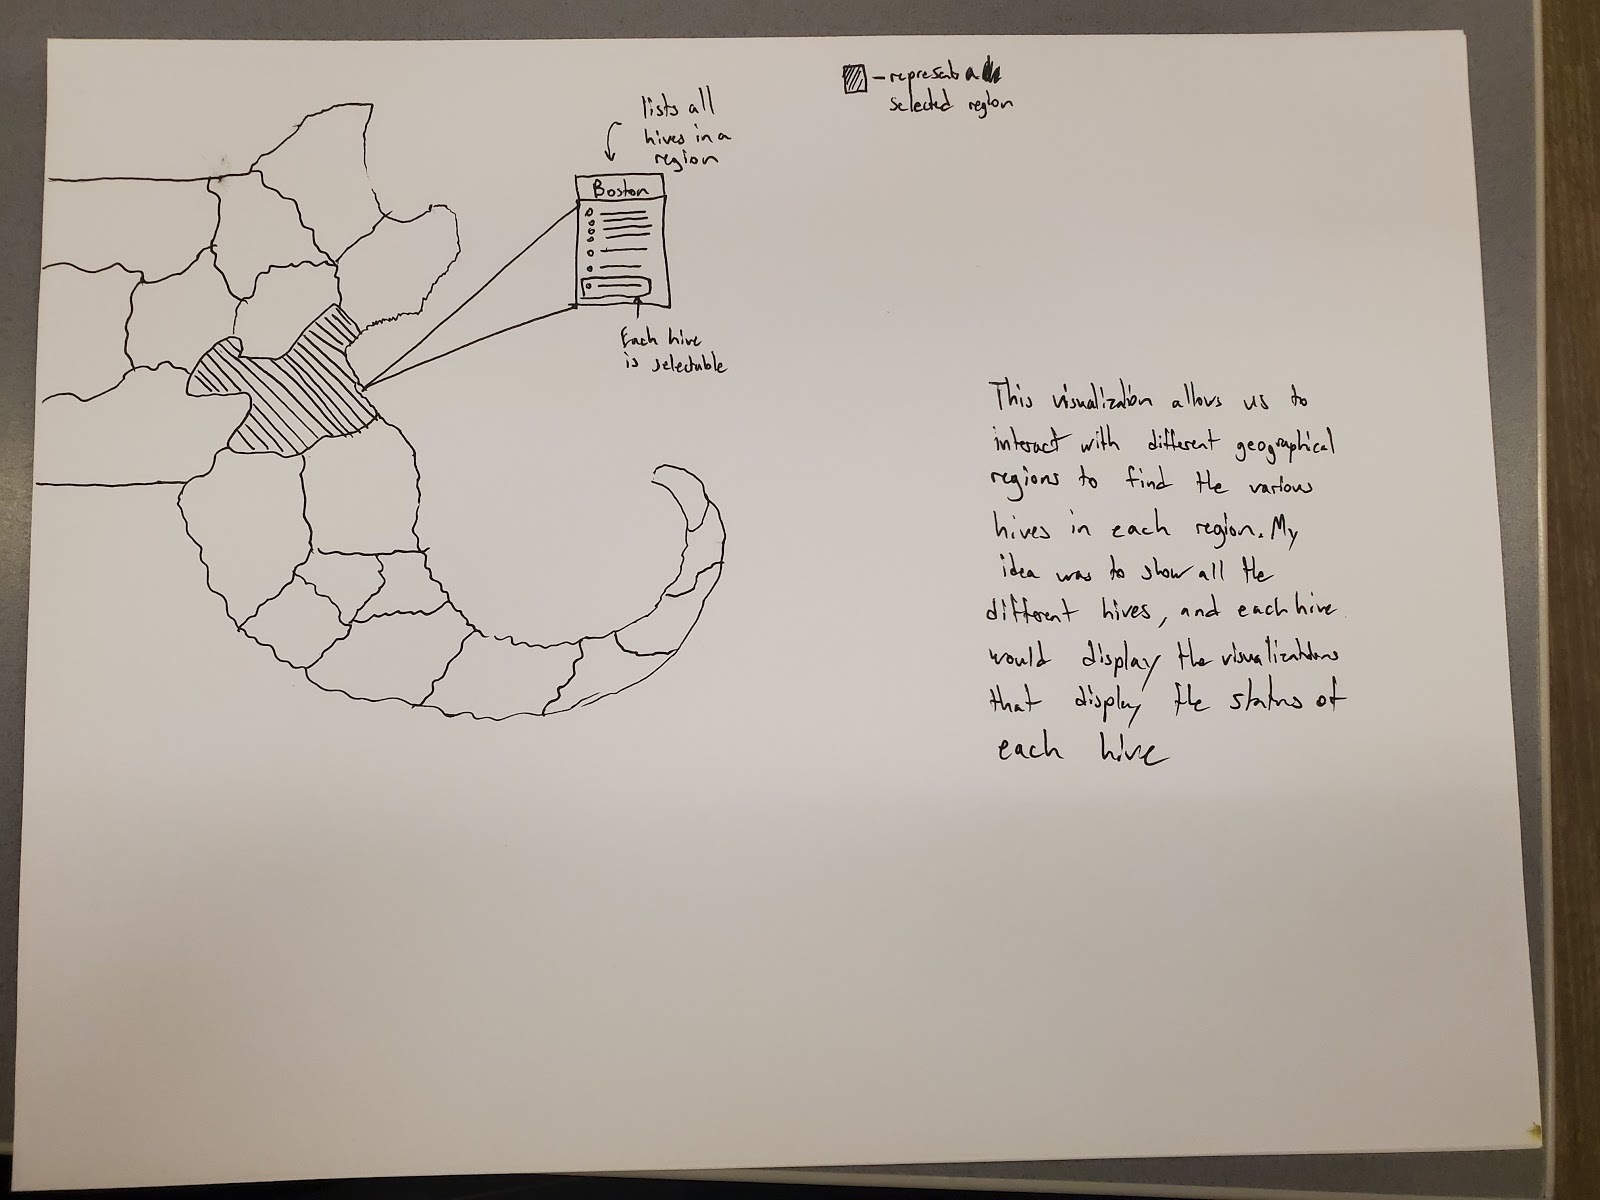 lists all
hives in a
region
Boston
Each hive
is selectable
- represents a
selected region
This visualization allows us to
interact with different geographical
regions to find the various
hives in each region. My
idea was to show all the
different hives, and each hive
would display the visualizations
that display the status of
each hive